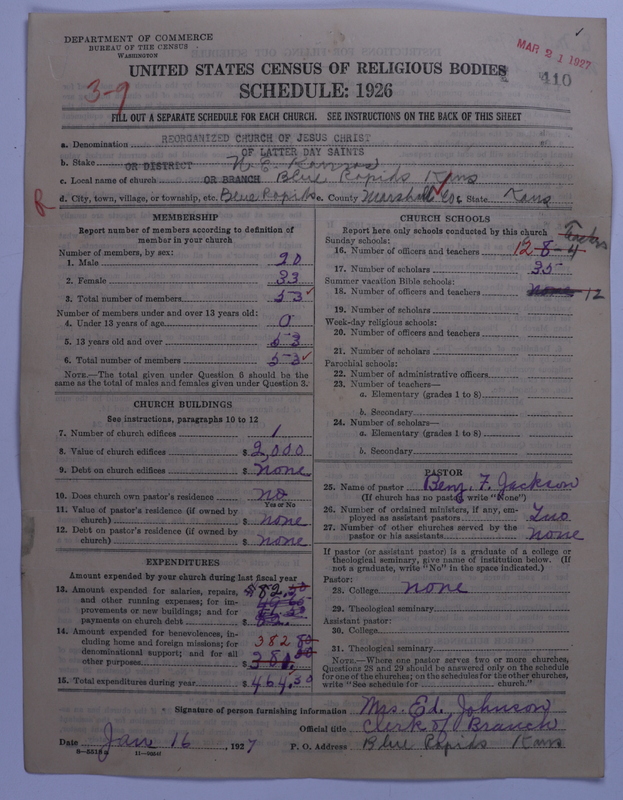 DEPARTMENT OF COMMERCE
BUREAU OF THE CENSUS
WASHINGTON
1
MAR 21 1927
UNITED STATES CENSUS OF RELIGIOUS BODIES
410
3-9
SCHEDULE: 1926
FILL OUT A SEPARATE SCHEDULE FOR EACH CHURCH. SEE INSTRUCTIONS ON THE BACK OF THIS SHEET
a. Denomination REORGANIZED CHURCH OF JESUS CHRIST
OF LATTER DAY SAINTS
b. Stake OR DISTRICT N. E. Kansas
c. Local name of church OR BRANCH Blue Rapids Kans
R
d. City, town, village, or township, etc. Blue Rapids e. County Marshall Co f. State Kans
MEMBERSHIP
Report number of members according to definition of
member in your church
Number of members, by sex:
1. Male 20
2. Female 33
3. Total number of members 53
Number of members under and over 13 years old:
4. Under 13 years of age 0
5. 13 years old and over 53
6. Total number of members 53
NOTE.—The total given under Question 6 should be the
same as the total of males and females given under Question 3.
CHURCH BUILDINGS
See instructions, paragraphs 10 to 12
7. Number of church edifices 1
8. Value of church edifices $ 2,000
9. Debt on church edifices $ none
10. Does church own pastor's residence no
Yes or No
11. Value of pastor's residence (if owned by
church) $ none
12. Debt on pastor's residence (if owned by
church) $ none
EXPENDITURES
Amount expended by your church during last fiscal year
13. Amount expended for salaries, repairs, $82.50
and other running expenses; for im-
provements or new buildings; and for
payments on church debt $
14. Amount expended for benevolences, in-
cluding home and foreign missions; for 382
denominational support; and for all
other purposes $
15. Total expenditures during year $ 464.30
CHURCH SCHOOLS
Report here only schools conducted by this church
Teachers
Sunday schools:
16. Number of officers and teachers 12 8-4
17. Number of scholars 35
Summer vacation Bible schools:
18. Number of officers and teachers none 12
19. Number of scholars
Week-day religious schools:
20. Number of officers and teachers
21. Number of scholars
Parochial schools:
22. Number of administrative officers
23. Number of teachers—
a. Elementary (grades 1 to 8)
b. Secondary
24. Number of scholars—
a. Elementary (grades 1 to 8)
b. Secondary
PASTOR
25. Name of pastor Benj. F. Jackson
(If church has no pastor, write "None")
26. Number of ordained ministers, if any, em-
ployed as assistant pastors Two
27. Number of other churches served by the
pastor or his assistants none
If pastor (or assistant pastor) is a graduate of a college or
theological seminary, give name of institution below. (If
not a graduate, write "No" in the space indicated.)
Pastor:
28. College none
29. Theological seminary
Assistant pastor:
30. College
31. Theological seminary
NOTE.—Where one pastor serves two or more churches,
Questions 28 and 29 should be answered only on the schedule
for one of the churches; on the schedules for the other churches,
write "See schedule for ______ church."
Signature of person furnishing information Mrs. Ed. Johnson
Official title Clerk of Branch
Date Jan 16, 1927 P. O. Address Blue Rapids Kans